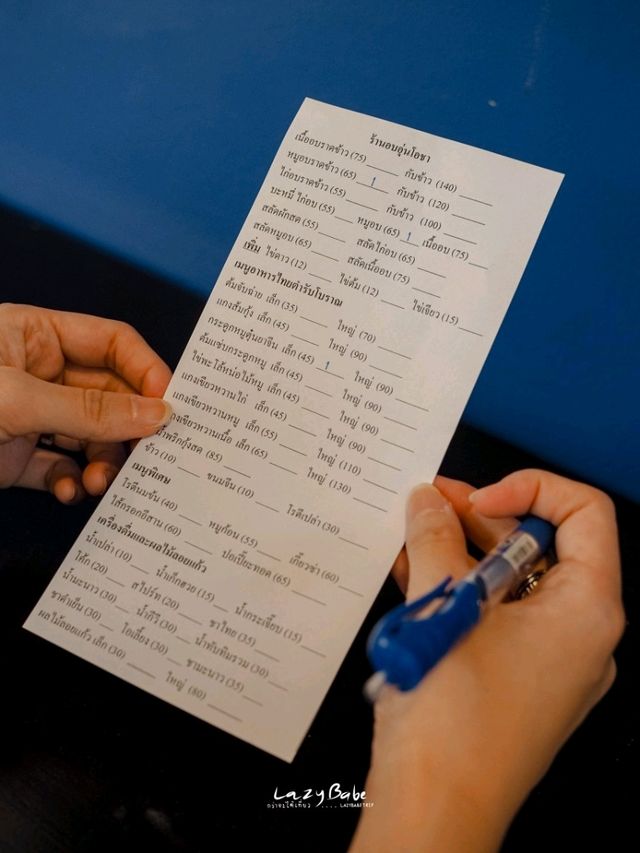 ร้านอบอุ่นโอชา
เนื้ออบราดข้าว (75)______ กับข้าว (140) ______
หมูอบราดข้าว (65) __1__ กับข้าว (120) ______
ไก่อบราดข้าว (55) ______ กับข้าว (100) ______
บะหมี่ ไก่อบ (55) ____ หมูอบ (65) _1_ เนื้ออบ (75) ____
สลัดผักสด (55) ______ สลัดไก่อบ (65) ______
สลัดหมูอบ (65) ______ สลัดเนื้ออบ (75) ______
เพิ่ม ไข่ดาว (12) ____ ไข่ต้ม (12) ____ ไข่เจียว (15) ____
เมนูอาหารไทยตำรับโบราณ
ต้มจับฉ่าย เล็ก (35) ____ ใหญ่ (70) ______
แกงส้มกุ้ง เล็ก (45) ____ ใหญ่ (90) ______
กระดูกหมูตุ๋นยาจีน เล็ก (45) _1_ ใหญ่ (90) ______
ต้มแซ่บกระดูกหมู เล็ก (45) ____ ใหญ่ (90) ______
ไข่พะโล้หน่อไม้หมู เล็ก (45) ____ ใหญ่ (90) ______
แกงเขียวหวานไก่ เล็ก (45) ____ ใหญ่ (90) ______
แกงเขียวหวานหมู เล็ก (55) ____ ใหญ่ (110) ______
แกงเขียวหวานเนื้อ เล็ก (65) ____ ใหญ่ (130) ______
น้ำพริกกุ้งสด (85) ______
ข้าว (10) ____ ขนมจีน (10) ____ โรตีเปล่า (30) ____
เมนูพิเศษ
โรตีนมข้น (40) ____ หมูก้อน (55) ____ เกี๊ยวซ่า (60) ____
ไส้กรอกอีสาน (60) ____ ปอเปี๊ยะทอด (65) ____
เครื่องดื่มและผลไม้ลอยแก้ว
น้ำเปล่า (10) ____ น้ำเก็กฮวย (15) ____ น้ำกระเจี๊ยบ (15) ____
โค้ก (20) ____ สไปร์ท (20) ____ ชาไทย (35) ____
น้ำมะนาว (30) ____ น้ำกีวี (30) ____ น้ำทับทิมรวม (30) ____
ชาดำเย็น (30) ____ โอเลี้ยง (30) ____ ชามะนาว (35) ____
ผลไม้ลอยแก้ว เล็ก (30) ____ ใหญ่ (80) ______
LazyBabe
กว่าจะได้เที่ยว .... LAZYBABETRIP